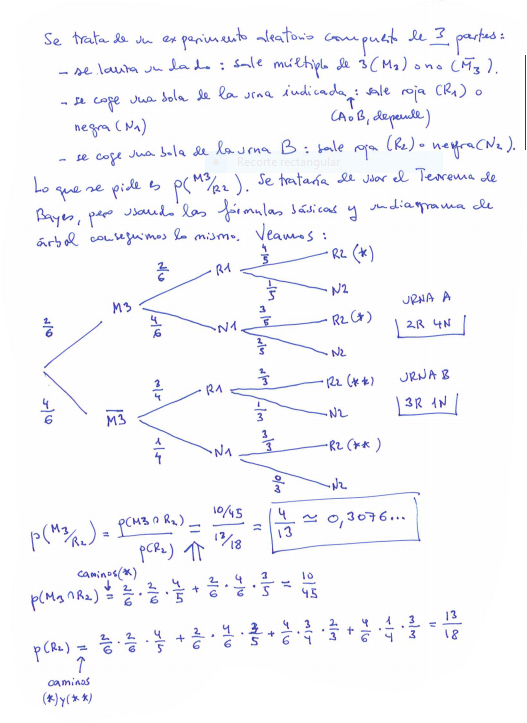 Se trata de un experimento aleatorio compuesto de 3 partes:
- se lanza un dado: sale múltiplo de 3 (M3) o no (M̅3̅).
- se coge una bola de la urna indicada: sale roja (R1) o
negra (N1) (A o B, depende)
- se coge una bola de la urna B: sale roja (R2) o negra (N2).
Recorte rectangular
Lo que se pide es p(M3/R2). Se trataría de usar el Teorema de
Bayes, pero usando las fórmulas básicas y un diagrama de
árbol conseguimos lo mismo. Veamos:
2/6 M3 2/6 R1 4/5 R2 (*)
1/5 N2
4/6 N1 3/5 R2 (*)
2/5 N2
4/6 M̅3̅ 3/4 R1 2/3 R2 (**)
1/3 N2
1/4 N1 3/3 R2 (**)
0/3 N2
URNA A
2R 4N
URNA B
3R 1N
p(M3/R2) = p(M3∩R2)/p(R2) = 10/45 / 13/18 = 4/13 ≃ 0,3076...
caminos (*)
p(M3∩R2) = 2/6 · 2/6 · 4/5 + 2/6 · 4/6 · 3/5 = 10/45
p(R2) = 2/6 · 2/6 · 4/5 + 2/6 · 4/6 · 3/5 + 4/6 · 3/4 · 2/3 + 4/6 · 1/4 · 3/3 = 13/18
caminos
(*) y (**)